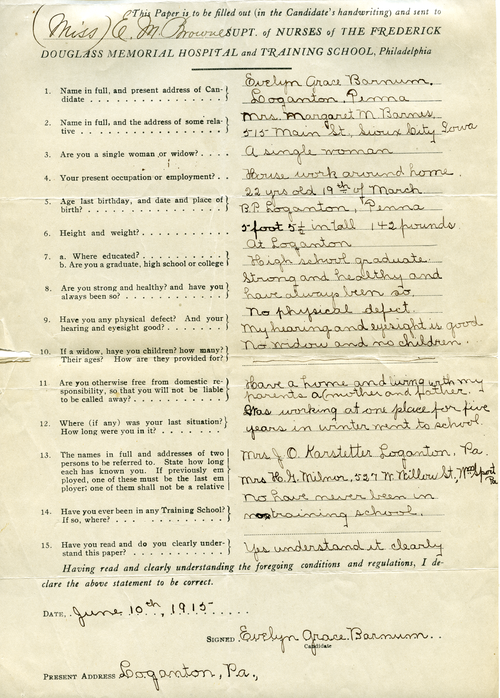 This Paper is to be filled out (in the Candidate's handwriting) and sent to
(Miss) E. M. Browne SUPT. of NURSES OF THE FREDERICK
DOUGLASS MEMORIAL HOSPITAL and TRAINING SCHOOL, Philadelphia
1. Name in full, and present address of Can-
didate
Evelyn Grace Barnum.
Loganton, Penna
2. Name in full, and the address of some rela-
tive
Mrs. Margaret M. Barnes
515 Main St, Sioux City Iowa
3. Are you a single woman or widow?
A single woman
4. Your present occupation or employment?
House work around home.
5. Age last birthday, and date and place of
birth?
22 yrs old 19th of March
B.P. Loganton, Penna
6. Height and weight?
5 foot 5½ in tall 142 pounds
7. a. Where educated?
b. Are you a graduate, high school or college
At Loganton
High school graduate.
8. Are you strong and healthy? and have you
always been so?
Strong and healthy and
have always been so.
9. Have you any physical defect? And your
hearing and eyesight good?
No physical defect.
My hearing and eyesight is good
10. If a widow, have you children? how many?
Their ages? How are they provided for?
No widow and no children.
11 Are you otherwise free from domestic re-
sponsibility, so that you will not be liable
to be called away?
Have a home and living with my
parents a (mother and father.
12. Where (if any) was your last situation?
How long were you in it?
Was working at one place for five
years in winter went to school.
13. The names in full and addresses of two
persons to be referred to. State how long
each has known you. If previously em
ployed, one of these must be the last em
ployer; one of them shall not be a relative
Mrs J. O. Karstetter Loganton, Pa.
Mrs H. G. Milnor, 527 W. Willow St, Wmsport
Pa.
14. Have you ever been in any Training School?
If so, where?
No have never been in
no training school.
15. Have you read and do you clearly under-
stand this paper?
Yes understand it clearly
Having read and clearly understanding the foregoing conditions and regulations, I de-
clare the above statement to be correct.
DATE, June 10th, 1915
SIGNED Evelyn Grace Barnum.
Candidate
PRESENT ADDRESS Loganton, Pa.,